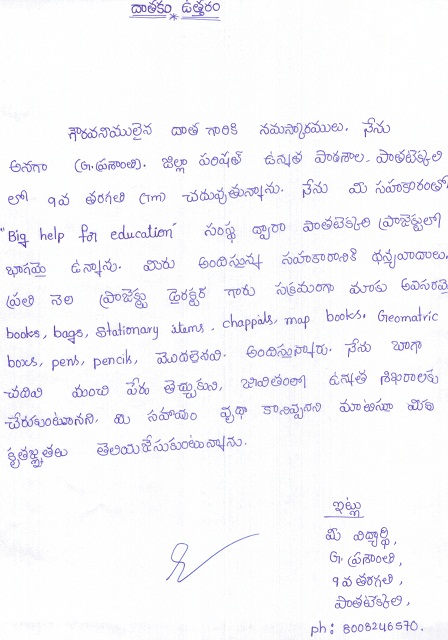 దాతకు ఉత్తరం
గౌరవనీయులైన దాత గారికి నమస్కారములు. నేను
అనగా (G. ప్రశాంతి). జిల్లా పరిషత్ ఉన్నత పాఠశాల - పాతటెక్కలి
లో 9వ తరగతి (TM) చదువుతున్నాను. నేను మీ సహకారంతో
"Big help for education" సంస్థ ద్వారా పాతటెక్కలి ప్రాజెక్టులో
భాగమై ఉన్నాను. మీరు అందిస్తున్న సహకారానికి ధన్యవాదాలు.
ప్రతి నెల ప్రాజెక్టు డైరెక్టర్ గారు సక్రమంగా మాకు అవసరమై
books, bags, Stationary items, chappals, map books. Geomatric
boxs, pens, pencils, మొదలైనవి. అందిస్తున్నారు. నేను బాగా
చదివి మంచి పేరు తెచ్చుకుని, జీవితంలో ఉన్నత శిఖరాలకు
చేరుకుంటానని. మీ సహాయం వృథా కానివ్వనని మాటిస్తూ మీకు
కృతజ్ఞతలు తెలియజేసుకుంటున్నాను.
ఇట్లు
మీ విద్యార్థి,
G. ప్రశాంతి,
9వ తరగతి,
పాతటెక్కలి,
ph: 8008246570.